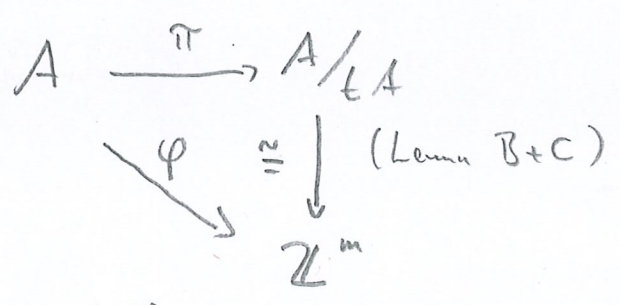 π
A → A/tA
φ ≅ ↓ (Lemma B+C)
ℤ^m